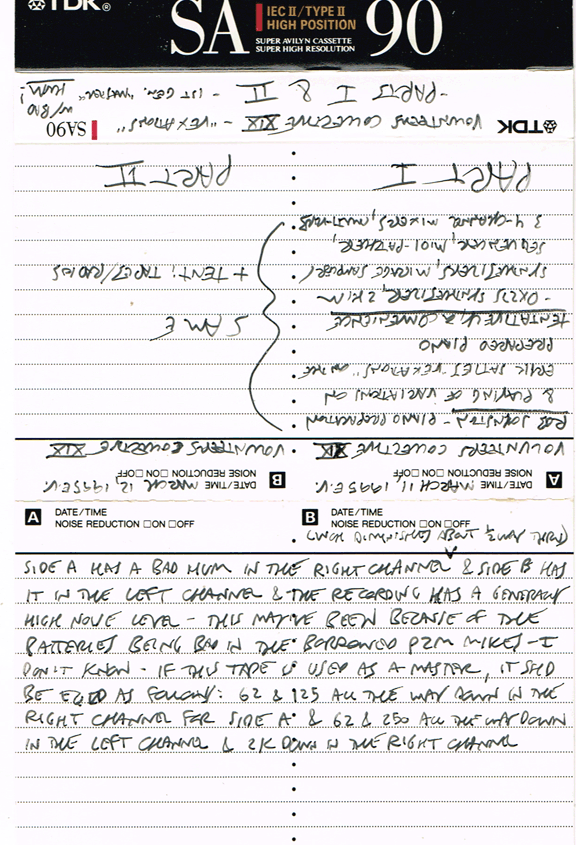 TDK®
SA
IEC II/TYPE II
HIGH POSITION
SUPER AVILYN CASSETTE
SUPER HIGH RESOLUTION
90
TDK
SA90
VOLUNTEERS COLLECTIVE XIX - "VEXATIONS"
- PARTS I & II - 1ST GEN. "MASTER"
W/ BAD
HUM!
A
DATE/TIME MARCH 11, 1995 E.V.
NOISE REDUCTION □ON □OFF
VOLUNTEERS COLLECTIVE XIX
ROB JOHNSTON - PIANO PREPARATION
& PLAYING OF VARIATIONS ON
ERIK SATIE'S "VEXATIONS" ON THE
PREPARED PIANO
TENTATIVELY, A CONVENIENCE
- OX235 SYNTHESIZER, 2 KIM
SYNTHESIZERS, MIRAGE SAMPLER/
SEQUENCER, MIDI-PATCHER,
3 4-CHANNEL MIXERS,
PART I
B
DATE/TIME MARCH 12, 1995 E.V.
NOISE REDUCTION □ON □OFF
VOLUNTEERS COLLECTIVE XIX
SAME
+ TENT: TAPES/RADIOS
PART II
A
DATE/TIME
NOISE REDUCTION □ON □OFF
B
DATE/TIME
NOISE REDUCTION □ON □OFF
(WHICH DIMINISHES ABOUT ½ WAY THRU)
SIDE A HAS A BAD HUM IN THE RIGHT CHANNEL & SIDE B HAS
IT IN THE LEFT CHANNEL & THE RECORDING HAS A GENERALLY
HIGH NOISE LEVEL - THIS MAYVE BEEN BECAUSE OF THE
BATTERIES BEING BAD IN THE BORROWED PZM MIKES - I
DON'T KNOW - IF THIS TAPE IS USED AS A MASTER, IT SHD
BE EQED AS FOLLOWS: 62 & 125 ALL THE WAY DOWN IN THE
RIGHT CHANNEL FOR SIDE A & 62 & 250 ALL THE WAY DOWN
IN THE LEFT CHANNEL & 2K DOWN IN THE RIGHT CHANNEL